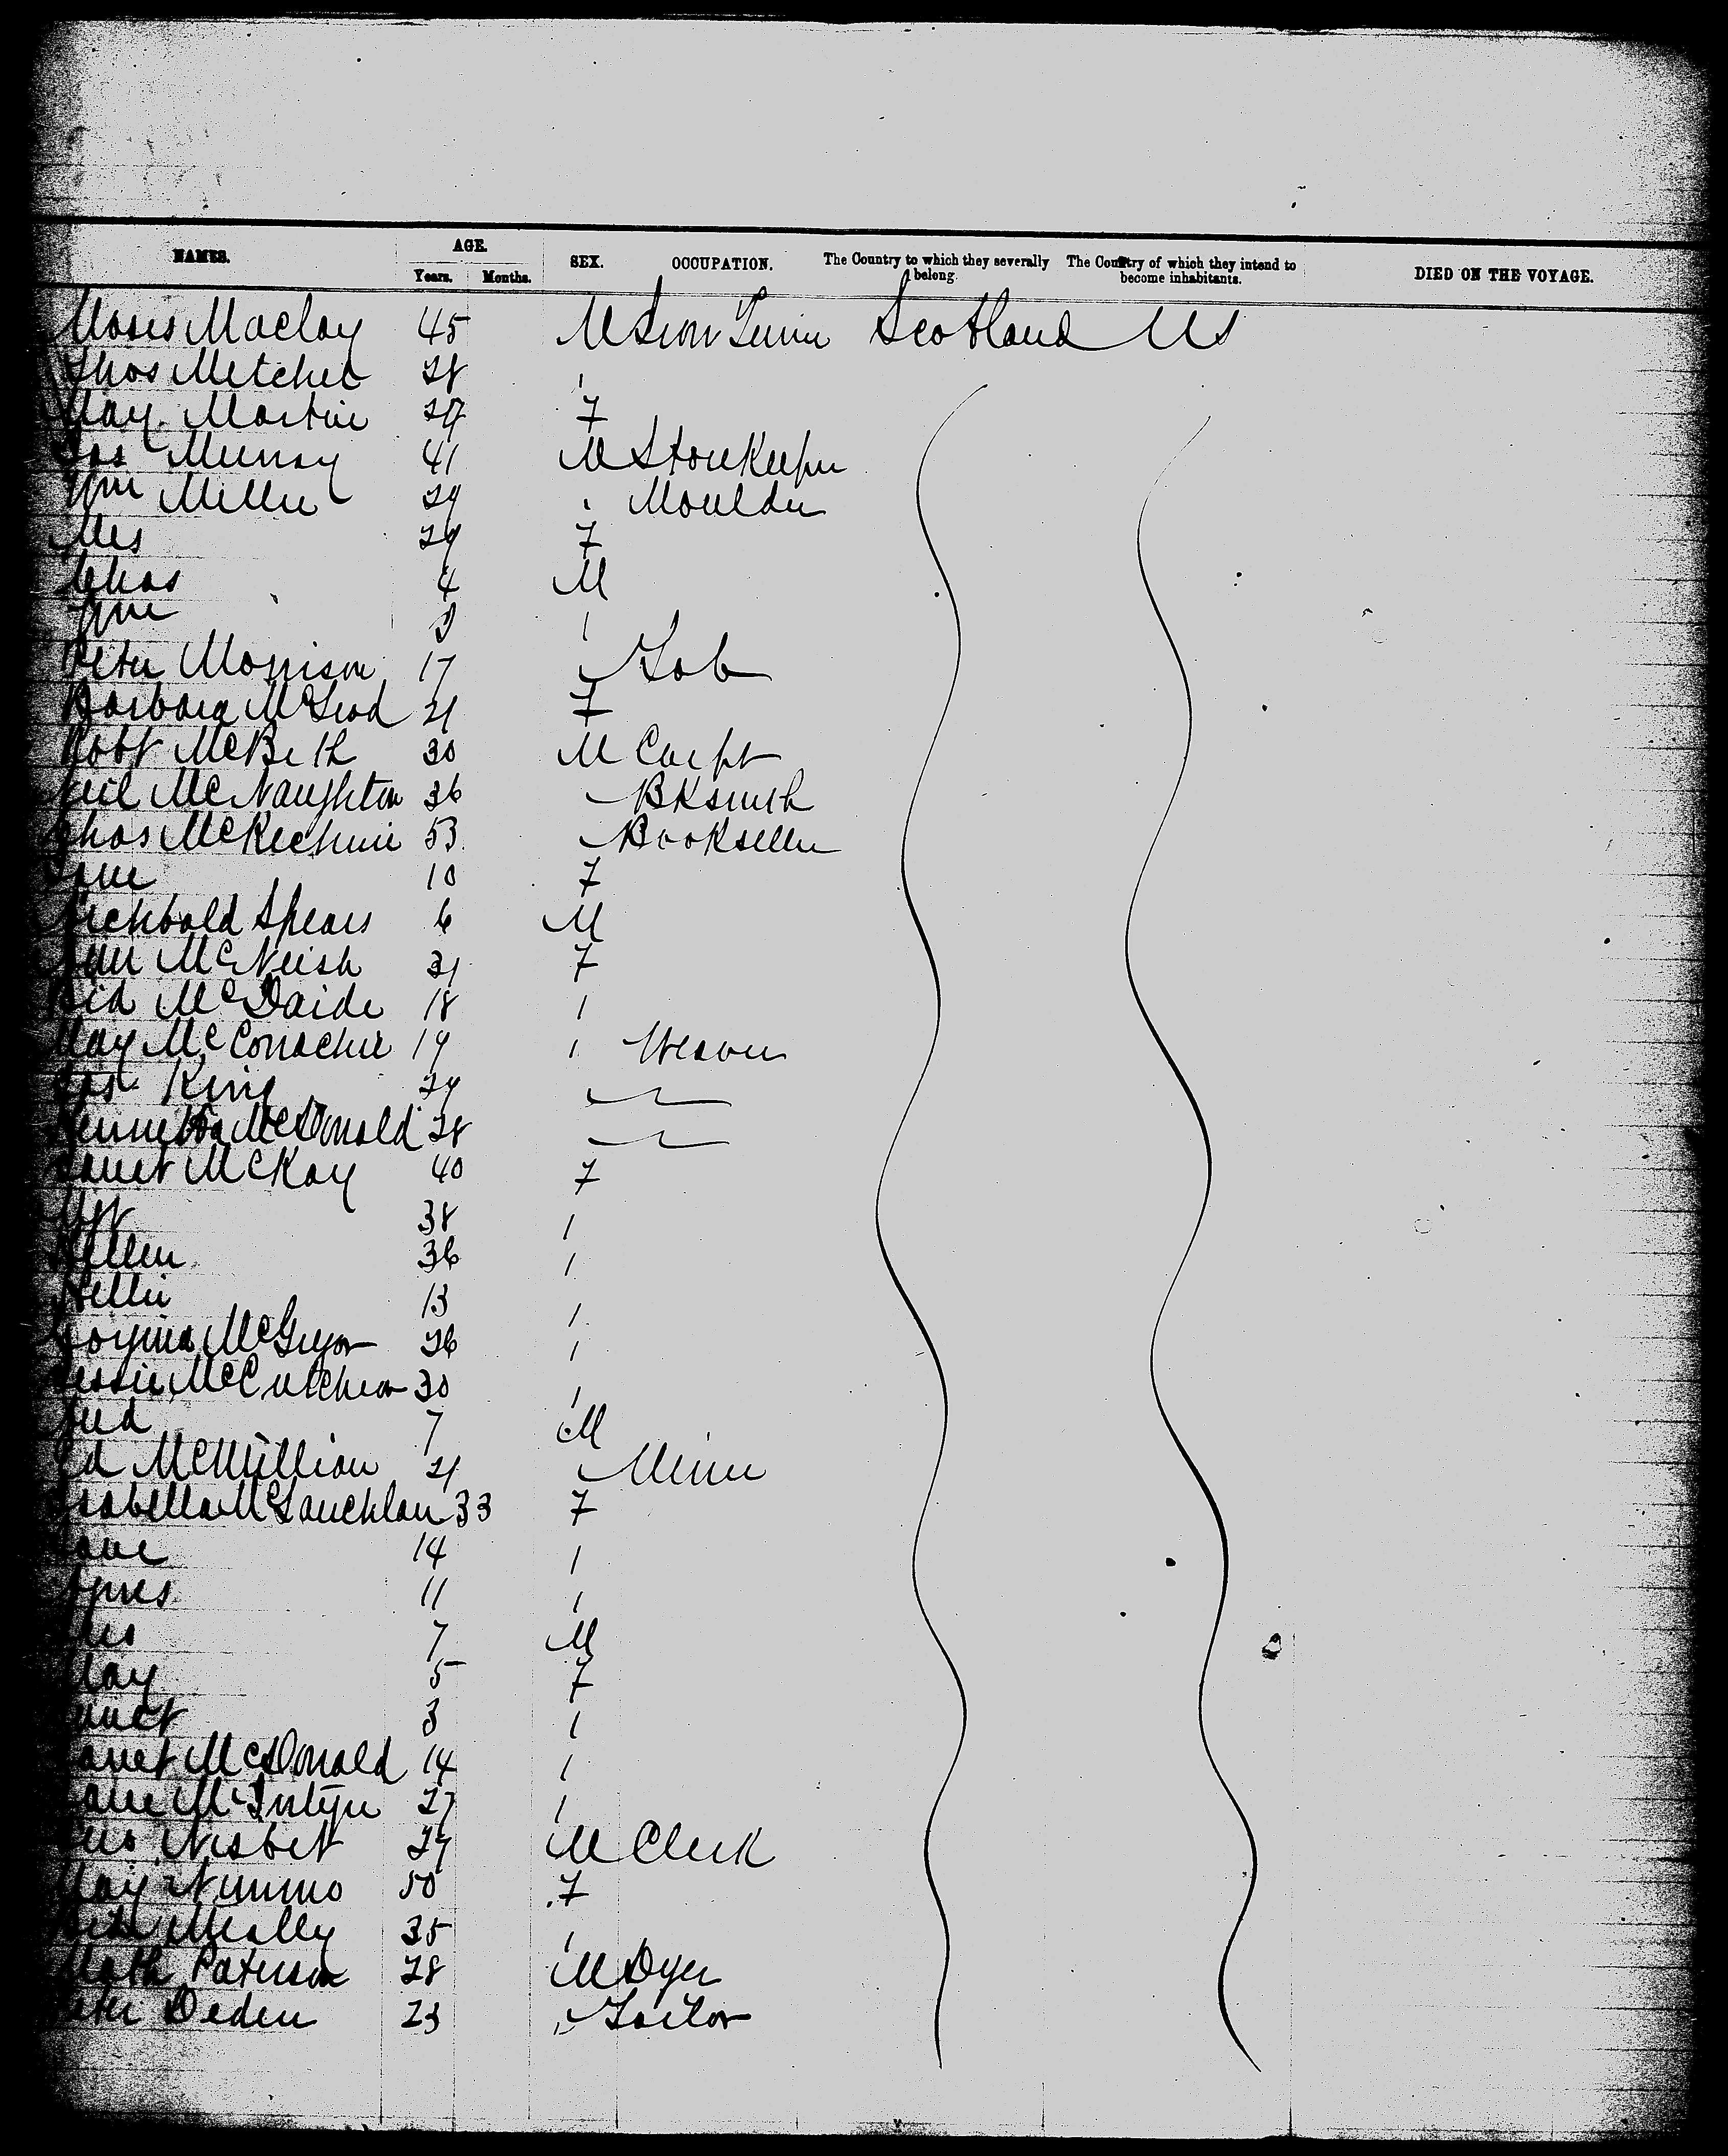 NAMES. AGE. SEX. OCCUPATION. The Country to which they severally belong. The Country of which they intend to become inhabitants. DIED ON THE VOYAGE.
Years. Months.
Moses Maclay 45 M Scotland US
Thos Metchel 28
May Martin 29 F
Jas Murray 41 M Storekeeper
Wm Miller 29 Moulder
Mrs 29 F
Chas 4 M
Wm
Peter Morrison 17 Lab
Barbara McLeod 21 F
Robt McBeth 30 M Carpt
Neil McNaughton 36 BKsmith
Thos McKechnie 53 Bookseller
Jane 10 F
Archbald Spears 6 M
McNeish 31 F
Bid McDaide 18
May McConachie 19 Weaver
Jas King 29
McDonald 28
Janet McKay 40 F
38
Hellen 36
Nellie 13
Gorgina McGregor 26
Jessie McCutcheon 30
7 M
Ed McMillian 21 Miner
Isabella McLauchlan 33 F
Jane 14
Agnes 11
7 M
May 5 F
Janet 3
Janet McDonald 14
Jane McIntyre 27
Nisbet 24 M Clerk
May Nimmo 50 F
35
Math Paterson 28 M Dyer
Peter Deden 23 Tailor